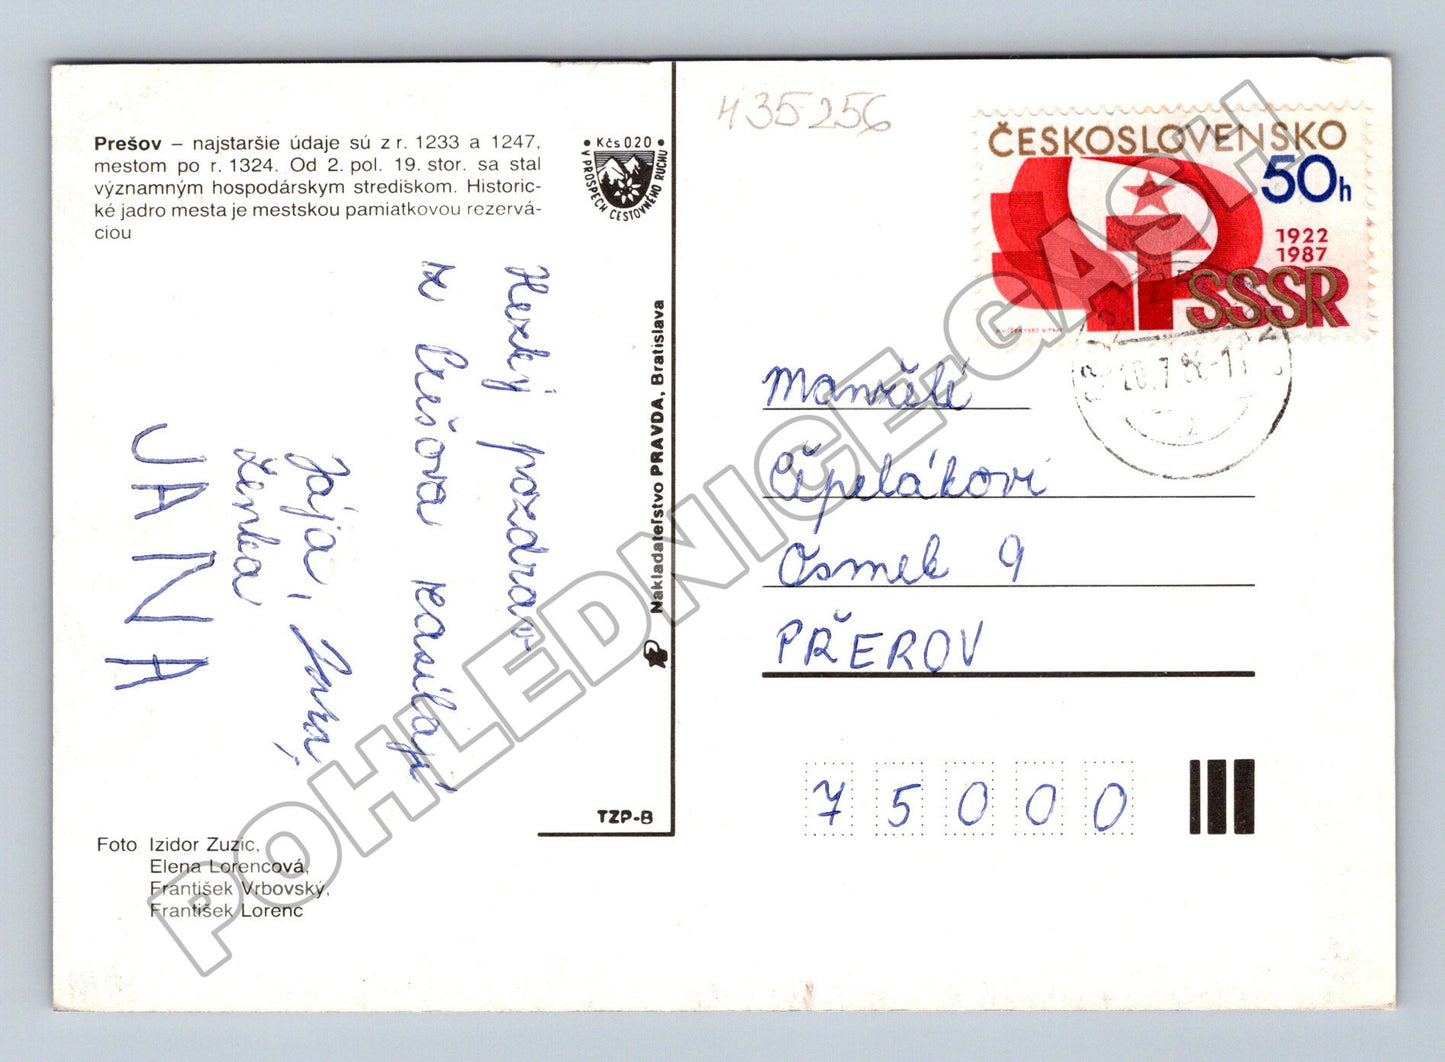 Prešov – najstaršie údaje sú z r. 1233 a 1247,
mestom po r. 1324. Od 2. pol. 19. stor. sa stal
významným hospodárskym strediskom. Historic-
ké jadro mesta je mestskou pamiatkovou rezervá-
ciou
• Kčs 0.20 •
V PROSPECH CESTOVNÉHO RUCHU
435256
ČESKOSLOVENSKO
50h
1922
1987
SSSR
Hezký pozdrav
z Prešova zasílají
Jája,
Lenka
JANA
Nakladateľstvo PRAVDA, Bratislava
TZP-B
Manželé
Čépelákovi
Osmek 9
PŘEROV
75000
Foto Izidor Zuzic,
Elena Lorencová,
František Vrbovský,
František Lorenc
POHLEDNICE.GASH